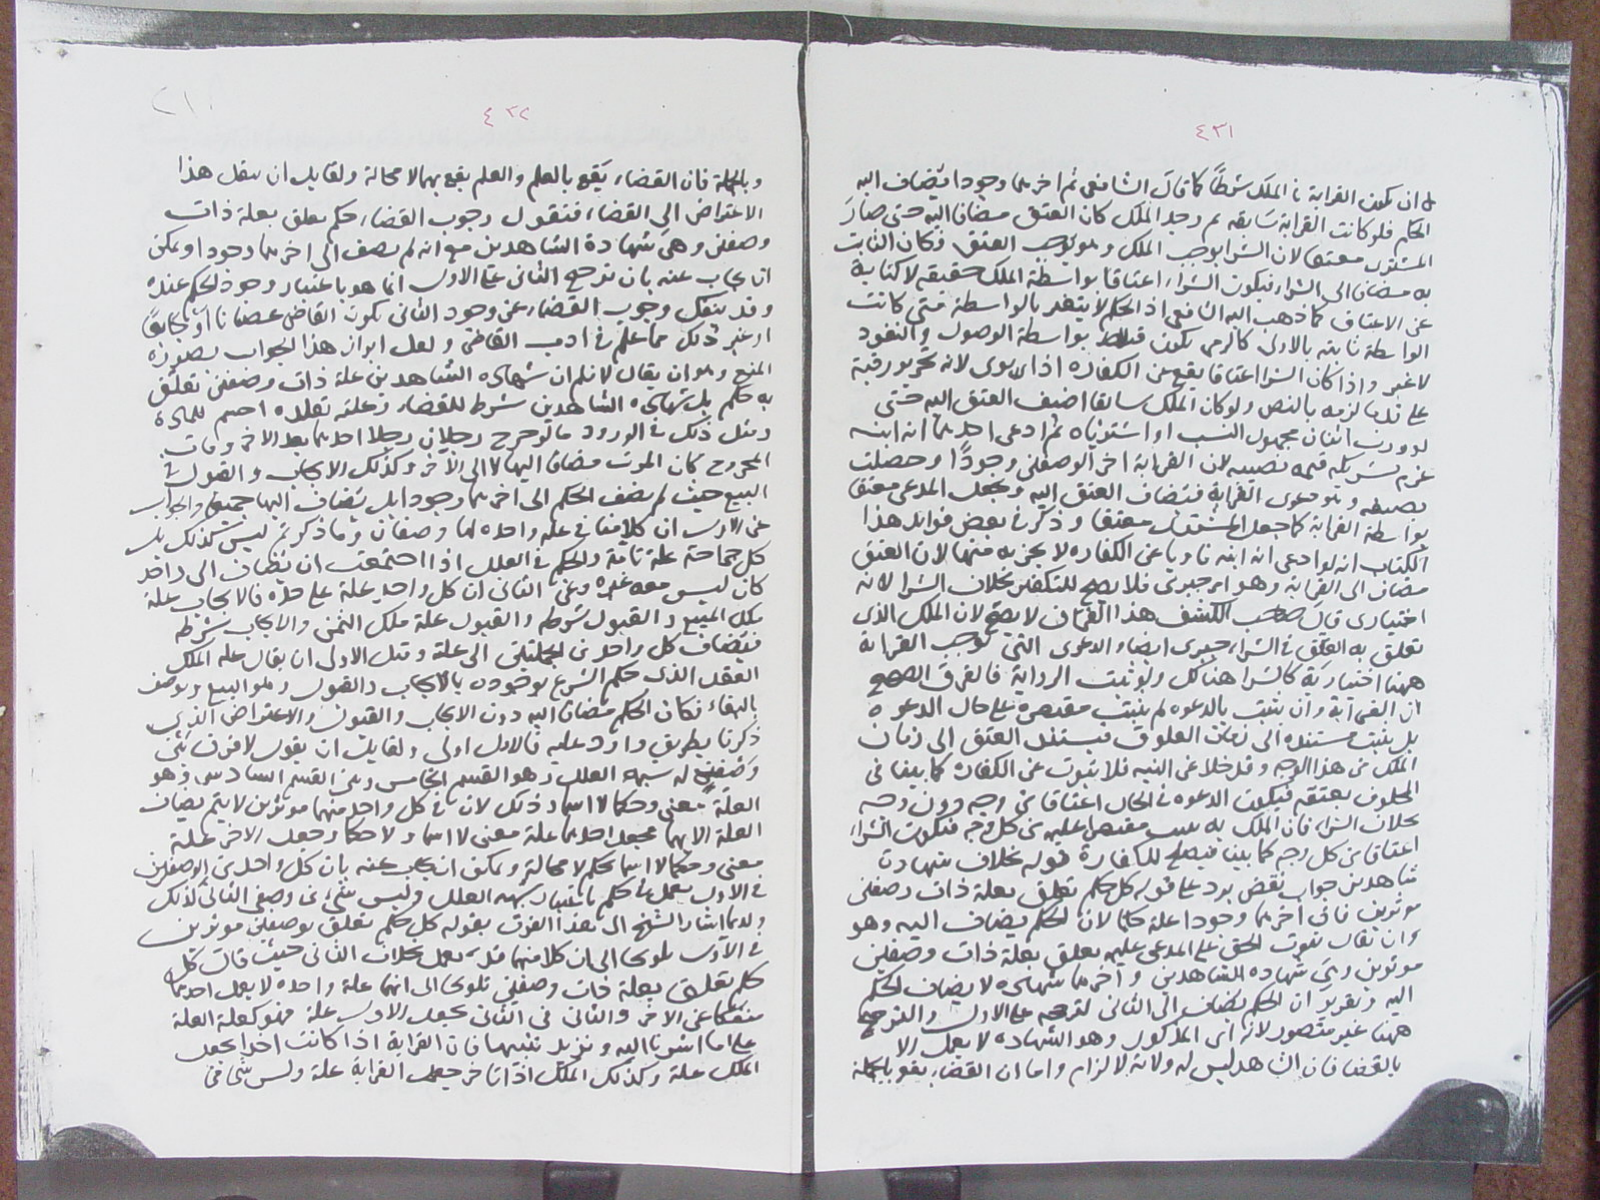 ٤٣١
ان تكون القرابة فالملك شرطا كما قال الشافعى ثم اخرهما وجودا يضاف اليه
الحكم فلو كانت القرابة سابقه ثم وجد الملك كان العتق مضافا اليه حتى صار
المشترى معتقا لان الشرا يوجب الملك وهو يوجب العتق فكان الثابت
به مضافا الى الشراء فيكون الشراء اعتاقا بواسطة الملك حقيقه لا كناية
عن الاعتاق كما ذهب اليه الشافعى اذ الحكم لا يتغير بالواسطة متى كانت
الواسطة ثابته بالاولى كالرمى يكون بواسطة الوصول والنفود
لا غير واذا كان الشرا اعتاقا يقع عن الكفاره اذا نوى لانه تحرير رقبة
على ما لزمه بالنص ولو كان الملك سابقا اضيف العتق اليه حتى
لو ورث اثنان مجهول النسب او اشترياه ثم ادعى احدهما انه ابنه
غرم لشريكه قيمه نصيبه لان القرابة اخر الوصفين وجودا وحصلت
بصنعه وهو دعوى القرابة فيضاف العتق اليه وجعل المدعى معتقا
بواسطة القرابة كما جعل المشترى معتقا وذكر فى بعض فوايد هذا
الكتاب انه لو ادعى انه ابنه ناويا عن الكفاره لا يجزيه منها لان العتق
مضاف الى القرابة وهو امر جبرى فلا يصح للتكفير بخلاف الشرا لانه
اختيارى قال صاحب الكشف هذا الفرق لا يصح لان الملك الذى
تعلق به العتق فى الشراء جبرى ايضا والدعوى التى توجب القرابة
ههنا اختيارية كالشرا هناك ولو ثبت الرواية فالفرق الصحيح
ان القرابة وان ثبتت بالدعوه لم يثبت مقتصره على حال الدعوة
بل يثبت مستنده الى زمان العلوق فيستند العتق الى زمان
الملك من هذا الوجه وقد خلا عن النيه فلا ينوب عن الكفاره كما بينا فى
المحلوف بعتقه فيكون الدعوه فى الحال اعتاقا من وجه دون وجه
بخلاف الشراء فان الملك به يثبت مقتصرا عليه من كل وجه فيكون الشراء
اعتاقا من كل وجه كما بينا فيصلح للكفارة قوله بخلاف شهادة
شاهدين جواب نقض يرد على قوله كل حكم تعلق بعلة ذات وصفين
موثرين فان اخرهما وجودا علة حكما لان الحكم يضاف اليه وهو
ان يقال ثبوت الحق على المدعى عليه تعلق بعلة ذات وصفين
موثرين وهى شهاده الشاهدين واخرهما شهاده لا يضاف الحكم
اليه وتقريره ان الحكم يضاف الى الثانى لترجحه على الاول والترجح
ههنا غير متصور لانه اى المذكور وهو الشهاده لا يعمل الا
بالقضا فان الشاهد ليس له ولاية الالزام واما ان القضاء يقع بالجملة
٤٣٢
وبالجملة فان القضاء يقع بالعلم والعلم يقع بهما لا محالة ولقايل ان ينقل هذا
الاعتراض الى القضاء فنقول وجوب القضاء حكم تعلق بعلة ذات
وصفين وهى شهادة الشاهدين مع انه لم يضف الى اخرهما وجودا ويمكن
ان يجاب عنه بان ترجح الثانى على الاول انما هو باعتبار وجود الحكم عنده
وقد ينفك وجوب القضاء عن وجود الثانى بكون القاضى غضبانا او جايعا
او غير ذلك مما علم فى ادب القاضى ولعل ايراد هذا الجواب بصورة
المنع وهو ان يقال لا نسلم ان شهادة الشاهدين علة ذات وصفين تعلق
به حكم بل شهادة الشاهدين شرط للقضاء وعلته تقلده احسم للمادة
ومثل ذلك فى الورود ما لو جرح رجلان رجلا احدهما بعد الاخر ومات
المجروح كان الموت مضافا اليهما لا الى الاخر وكذلك الايجاب والقبول فى
البيع حيث لم يضف الحكم الى اخرهما وجودا بل يضاف اليهما جميعا والجواب
عن الاول ان كلامنا فى علة واحده لها وصفان وما ذكرتم ليس كذلك بل
كل جراحة علة تامة والحكم فى العلل اذا اجتمعت ان يضاف الى واحد
كان ليس معه غيره وعن الثانى ان كل واحد علة على حده فالايجاب علة
ملك المبيع والقبول شرطه والقبول علة ملك الثمن والايجاب شرطه
فيضاف كل واحد من الحكمين الى علة وقيل الاولى ان يقال علة الملك
العقد الذى حكم الشرع بوجوده بالايجاب والقبول وهو البيع ويوصف
بالبقاء فكان الحكم مضافا اليه دون الايجاب والقبول والاعتراض الذى
ذكرنا بطريق وارد عليه فالاول اولى ولقايل ان يقول لا فرق بين
وصفين له شبهه العلل وهو القسم الخامس وبين القسم السادس وهو
العلة معنى وحكما لا اسما وذلك لان فى كل واحد منهما موثرين لا يتم نصاب
العلة الا بهما فجعل احدهما علة معنى لا اسما ولا حكما وجعل الاخر علة
معنى وحكما لا اسما تحكم لا محالة ويمكن ان يجاب عنه بان كل واحد من الوصفين
فى الاول يعمل فى حكم باعتبار شبهه العلل وليس شىء من وصفى الثانى كذلك
ولهذا اشار الشيخ الى هذا الفرق بقوله كل حكم تعلق بوصفين موثرين
فى الاول تلويحا الى ان كلا منهما قد يعمل بخلاف الثانى حيث قال كل
حكم تعلق بعلة ذات وصفين تلويحا الى انهما علة واحده لا يعمل احدهما
منفكا عن الاخر والثانى فى الثانى بجعل الاول علة فهو كعلة العلة
على ما اشرنا اليه ونزيد تنبيها فان القرابة اذا كانت اخرا يجعل
الملك علة وكذلك الملك اذا تاخر جعلت القرابة علة وليس شئ فى